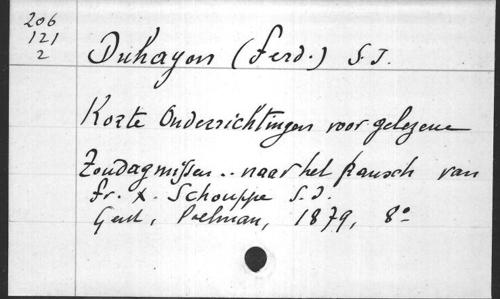 206
121
2
Duhayon (Ferd.) S.J.
Korte Onderrichtingen voor gelezene
Zondagmissen .. naar het fransch van
Fr. X. Schouppe S.J.
Gent, Poelman, 1879, 8°